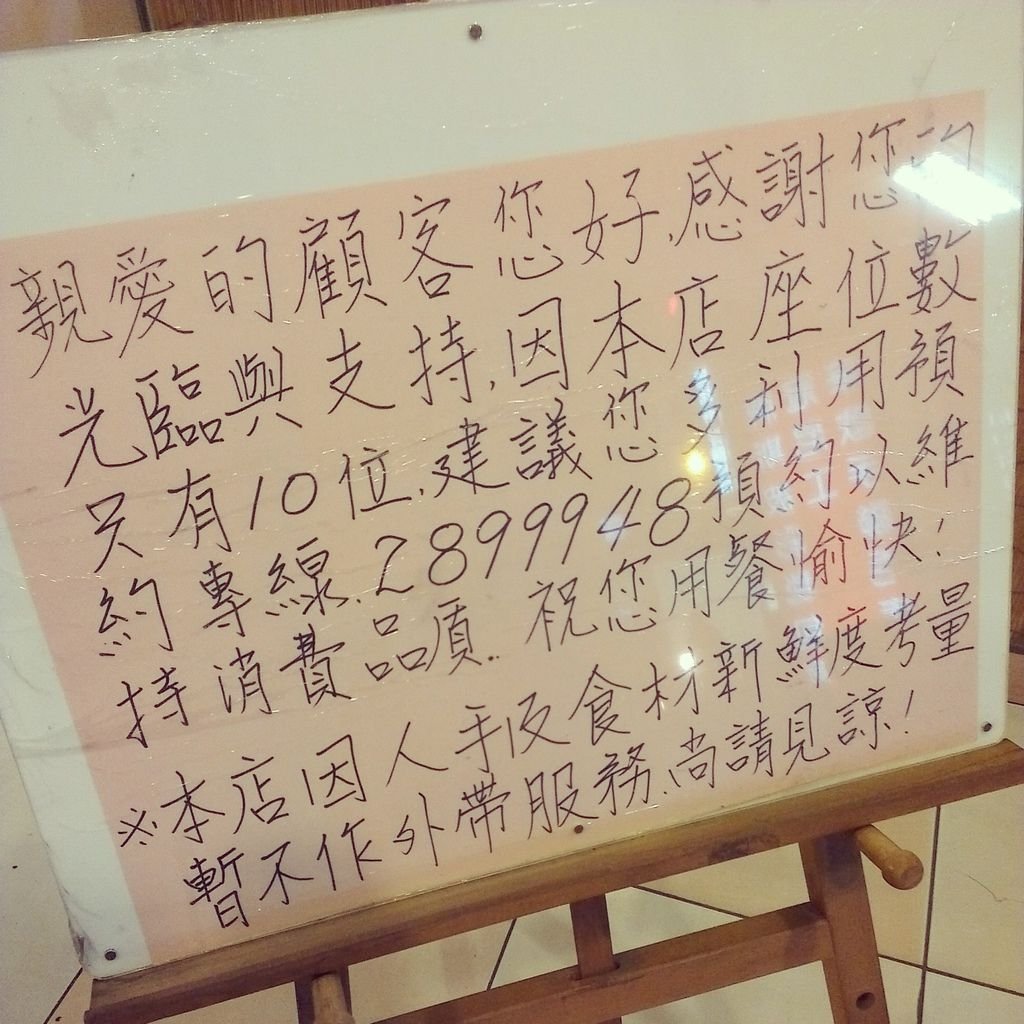 親愛的顧客您好,感謝您的
光臨與支持,因本店座位數
只有10位,建議您多利用預
約專線,2899948預約以維
持消費品質.祝您用餐愉快!
※本店因人手及食材新鮮度考量
暫不作外帶服務,尚請見諒!